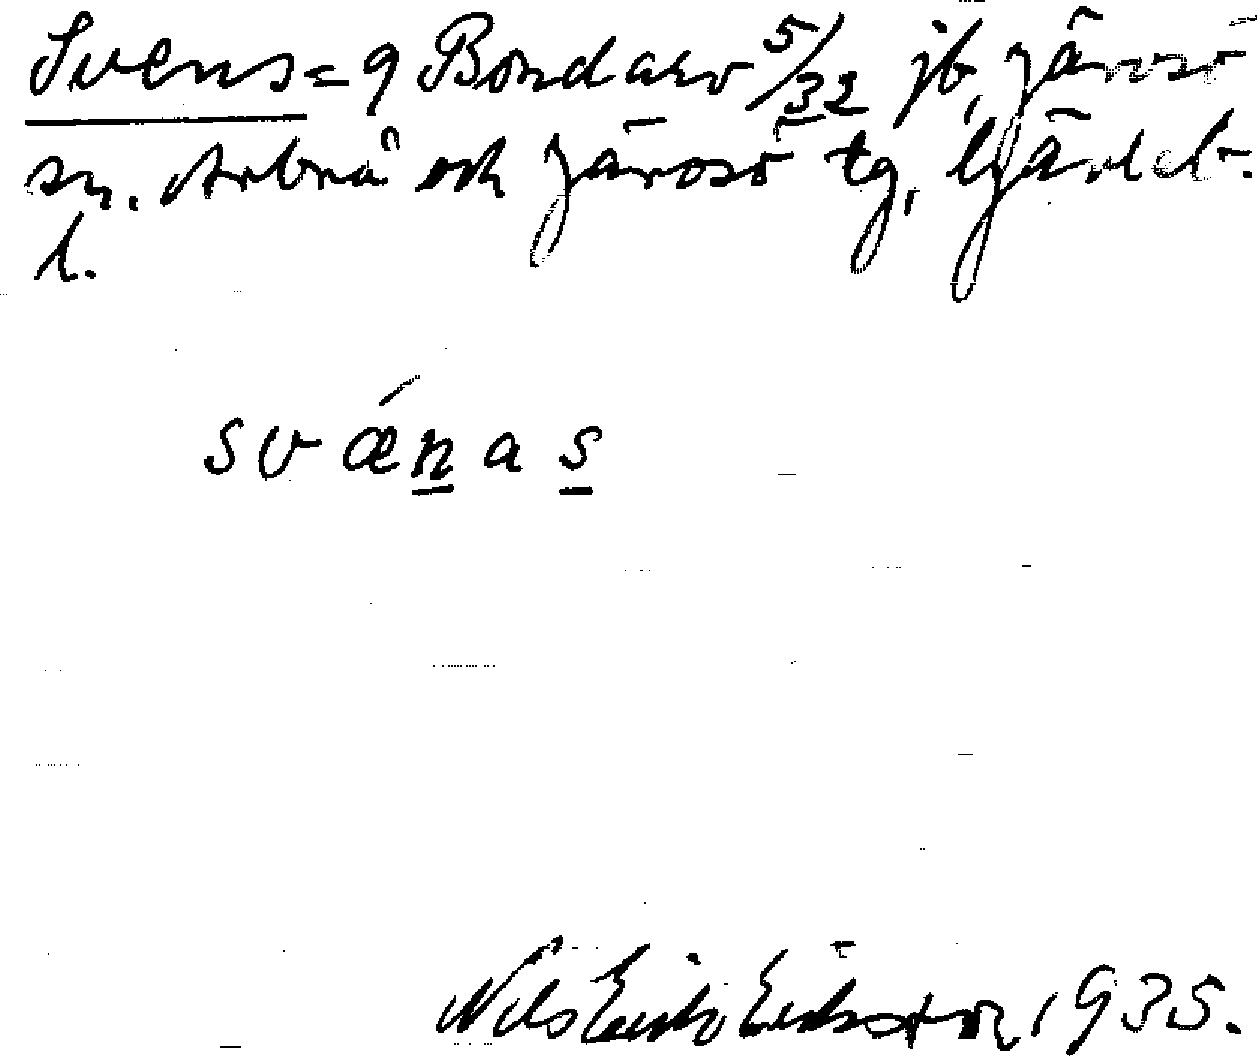 Svens = g Bondarv 5/32 jb, Järvsö
sn. Arbrå och Järvsö tg, Gävleb.
l.
svǽnas
Nils Erik Eriksson, 1935.